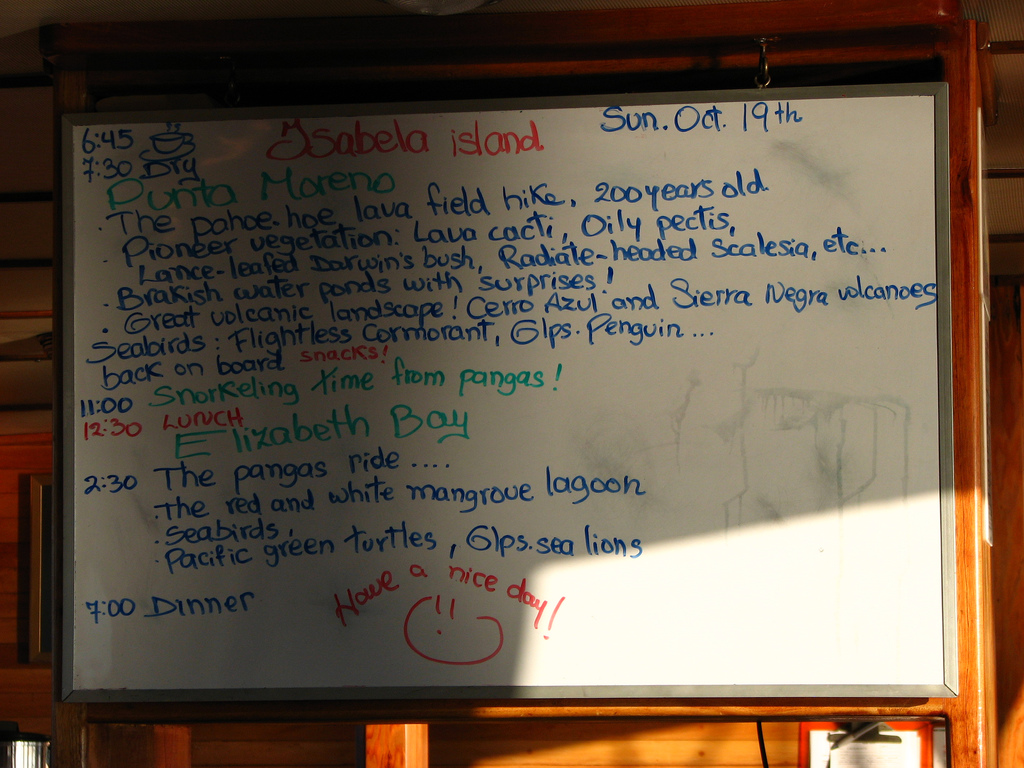 6:45
Isabela island
Sun. Oct. 19th
7:30 Dry
Punta Moreno
· The pahoe-hoe lava field hike, 200 years old.
· Pioneer vegetation: Lava cacti, Oily pectis,
Lance-leafed Darwin's bush, Radiate-headed Scalesia, etc...
· Brakish water ponds with surprises!
· Great volcanic landscape! Cerro Azul and Sierra Negra volcanoes
Seabirds: Flightless Cormorant, Glps. Penguin...
back on board snacks!
11:00 Snorkeling time from pangas!
12:30 LUNCH
Elizabeth Bay
2:30 The pangas ride ....
· the red and white mangrove lagoon
· Seabirds,
· Pacific green turtles, Glps. sea lions
7:00 Dinner
Have a nice day!